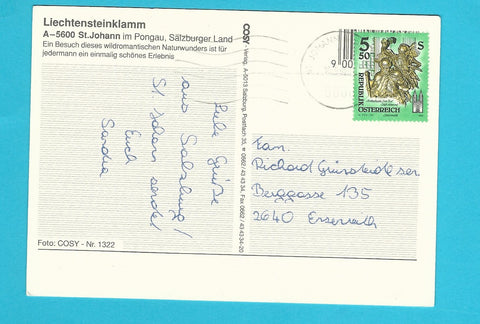 Liechtensteinklamm
A–5600 St.Johann im Pongau, Salzburger Land
Ein Besuch dieses wildromantischen Naturwunders ist für
jedermann ein einmalig schönes Erlebnis
Liebe Grüße
aus Salzburg /
St Johann sendet
Euch
Sandra
Foto: COSY - Nr. 1322
COSY - Verlag, A-5013 Salzburg, Postfach 35, 0662/43 43 34, Fax 0662/43 43 34-20
ST JOHANN
9 00
5
50
S
REPUBLIK
ÖSTERREICH
Fam.
Richard
Berggasse 135
2640